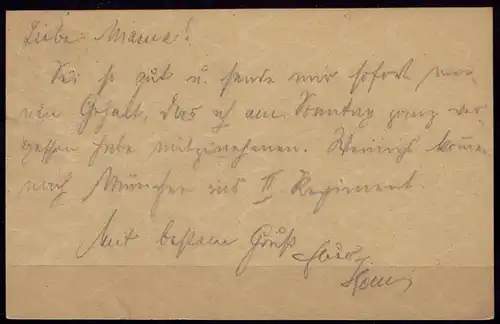 Liebe Mama!
Sei so gut u. sende mir sofort mei-
nen Gehalt, das ich am Sonntag ganz ver-
gessen habe mitzunehmen. komme
nach München ins II Regiment.
Mit bestem Gruß Euer